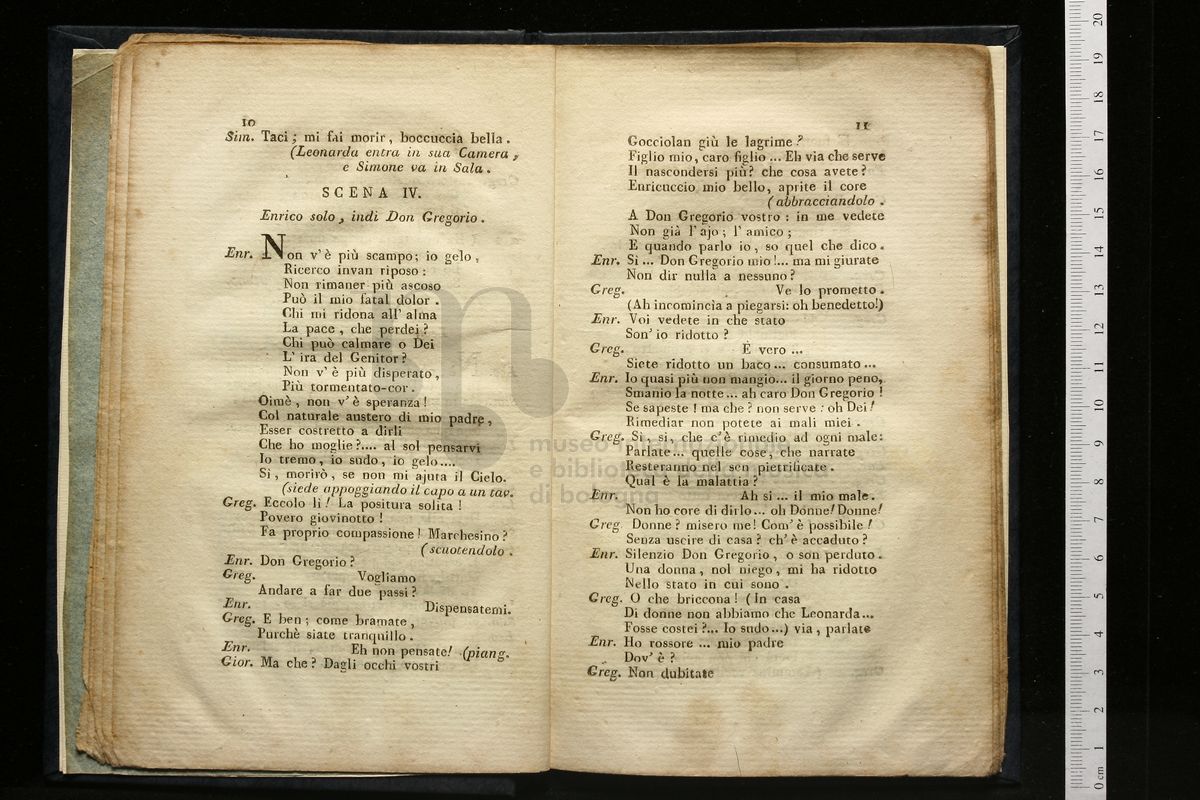 10
Sim. Taci; mi fai morir, boccuccia bella.
(Leonarda entra in sua Camera,
e Simone va in Sala.
SCENA IV.
Enrico solo, indi Don Gregorio.
Enr. Non v'è più scampo; io gelo,
Ricerco invan riposo:
Non rimaner più ascoso
Può il mio fatal dolor.
Chi mi ridona all' alma
La pace, che perdei?
Chi può calmare o Dei
L' ira del Genitor?
Non v' è più disperato,
Più tormentato cor.
Oimè, non v'è speranza!
Col naturale austero di mio padre,
Esser costretto a dirli
Che ho moglie?.... al sol pensarvi
Io tremo, io sudo, io gelo....
Si, morirò, se non mi ajuta il Cielo.
(siede appoggiando il capo a un tav.
Greg. Eccolo lì! La positura solita!
Povero giovinotto!
Fa proprio compassione! Marchesino?
(scuotendolo.
Enr. Don Gregorio?
Greg. Vogliamo
Andare a far due passi?
Enr. Dispensatemi.
Greg. E ben; come bramate,
Purchè siate tranquillo.
Enr. Eh non pensate! (piang.
Gior. Ma che? Dagli occhi vostri
11
Gocciolan giù le lagrime?
Figlio mio, caro figlio... Eh via che serve
Il nascondersi più? che cosa avete?
Enricuccio mio bello, aprite il core
(abbracciandolo.
A Don Gregorio vostro: in me vedete
Non già l'ajo; l' amico;
E quando parlo io, so quel che dico.
Enr. Si... Don Gregorio mio!... ma mi giurate
Non dir nulla a nessuno?
Greg. Ve lo prometto.
(Ah incomincia a piegarsi: oh benedetto!)
Enr. Voi vedete in che stato
Son' io ridotto?
Greg. È vero...
Siete ridotto un baco... consumato...
Enr. Io quasi più non mangio... il giorno peno,
Smanio la notte... ah caro Don Gregorio!
Se sapeste! ma che? non serve: oh Dei!
Rimediar non potete ai mali miei.
Greg. Si, si, che c'è rimedio ad ogni male:
Parlate... quelle cose, che narrate
Resteranno nel sen pietrificate.
Qual è la malattia?
Enr. Ah si... il mio male.
Non ho core di dirlo... oh Donne! Donne!
Greg Donne? misero me! Com' è possibile!
Senza uscire di casa? ch' è accaduto?
Enr. Silenzio Don Gregorio, o son perduto.
Una donna, nol niego, mi ha ridotto
Nello stato in cui sono.
Greg. O che briccona! (In casa
Di donne non abbiamo che Leonarda...
Fosse costei?... Io sudo...) via, parlate
Enr. Ho rossore... mio padre
Dov' è?
Greg. Non dubitate
museo internazionale
e biblioteca della musica
di bologna
0 cm 1 2 3 4 5 6 7 8 9 10 11 12 13 14 15 16 17 18 19 20